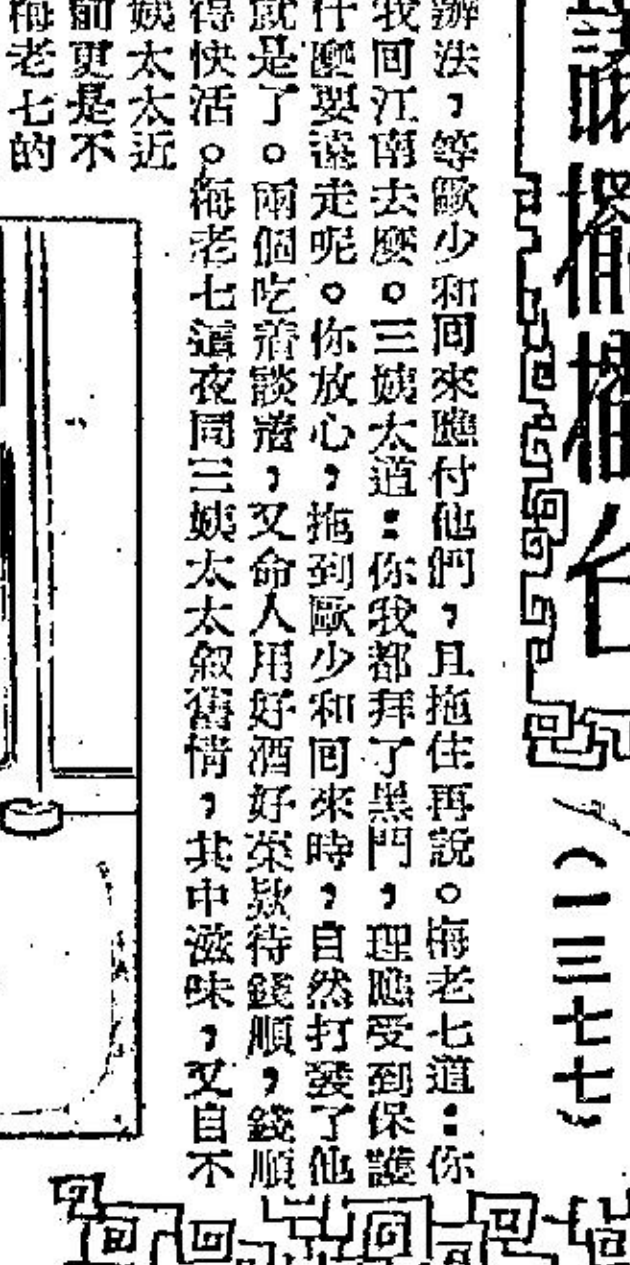 擂台
(一三七七)
辦法，等歐少和回來應付他們，且拖住再說。梅老七道：你
我回江南去麼。三姨太道：你我都拜了黑門，理應受到保護
什麼要遠走呢。你放心，拖到歐少和回來時，自然打發了他
就是了。兩個吃着談着，又命人用好酒好菜欵待錢順，錢順
得快活。梅老七這夜同三姨太太敘舊情，其中滋味，又自不
姨太太近
前更是不
梅老七的